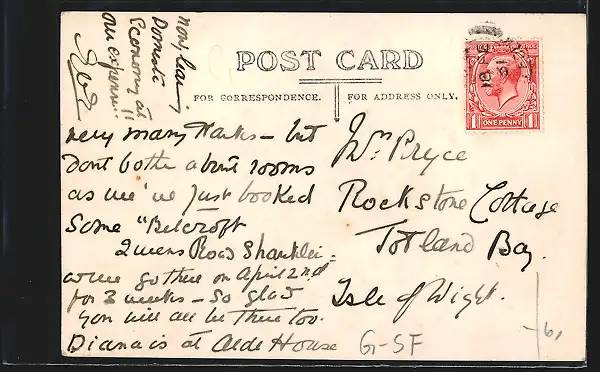 now learning
Domestic
Economy at
our expense!!
POST CARD
FOR CORRESPONDENCE.
FOR ADDRESS ONLY.
ONE PENNY
very many thanks - but
dont bother about rooms
as we've just booked
some "Belcroft
Queens Road Shanklin =
we go there on April 2nd
for 3 weeks - So glad
you will all be there too.
Diana is at Alde House
Mrs. Pryce
Rockstone Cottage
Totland Bay.
Isle of Wight.
G-SF